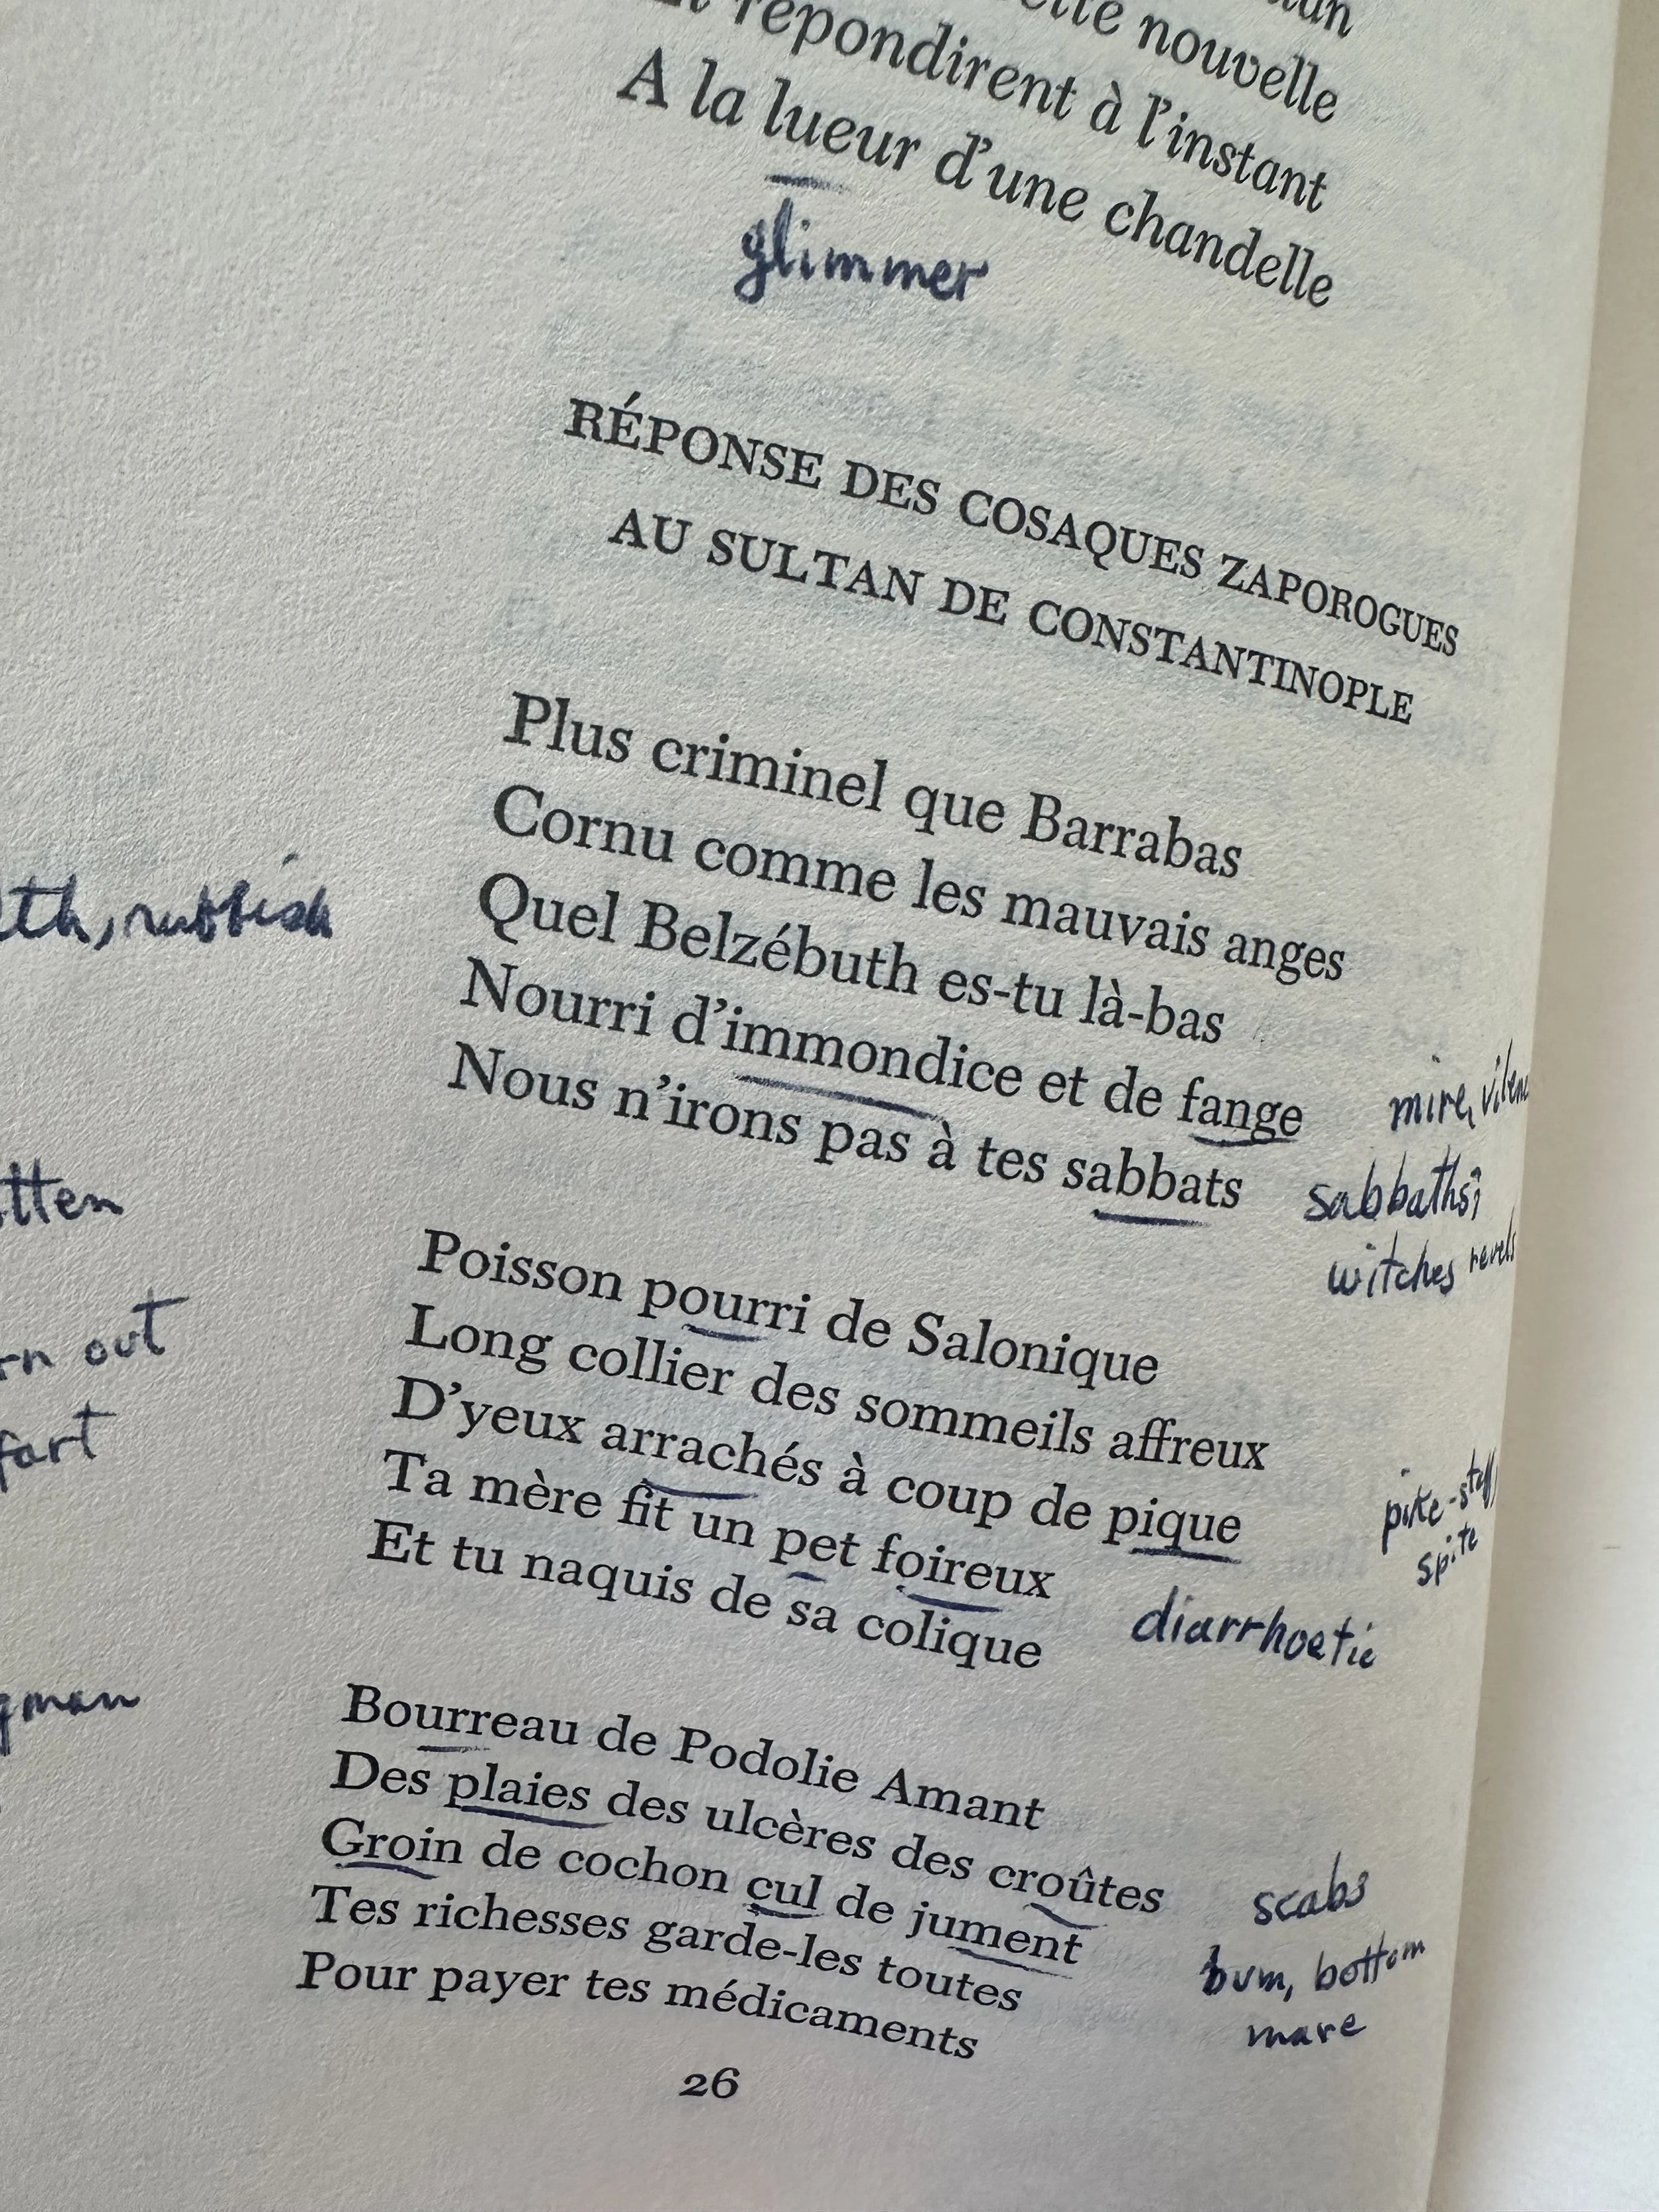 nouvelle
répondirent à l'instant
A la lueur d'une chandelle
glimmer
RÉPONSE DES COSAQUES ZAPOROGUES
AU SULTAN DE CONSTANTINOPLE
Plus criminel que Barrabas
Cornu comme les mauvais anges
Quel Belzébuth es-tu là-bas
rubbish
Nourri d'immondice et de fange
mire,
Nous n'irons pas à tes sabbats
sabbaths;
witches revels
Poisson pourri de Salonique
Long collier des sommeils affreux
out
D'yeux arrachés à coup de pique
pike-staff,
spite
fart
Ta mère fit un pet foireux
diarrhoetic
Et tu naquis de sa colique
Bourreau de Podolie Amant
Des plaies des ulcères des croûtes
scabs
Groin de cochon cul de jument
bum, bottom
mare
Tes richesses garde-les toutes
Pour payer tes médicaments
26